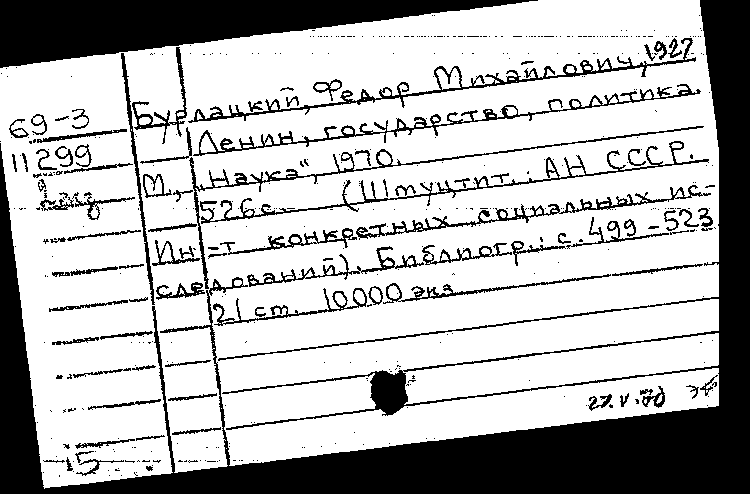 Бурлацкий, Федор Михайлович, 1927
69-3
Ленин, государство, политика.
11299
М., „Наука", 1970.
526с. (Штуцтит.: АН СССР.
Ин-т конкретных социальных ис-
следований). Библиогр.: с. 499-523
21 ст. 10000 экз
27.V.70
15